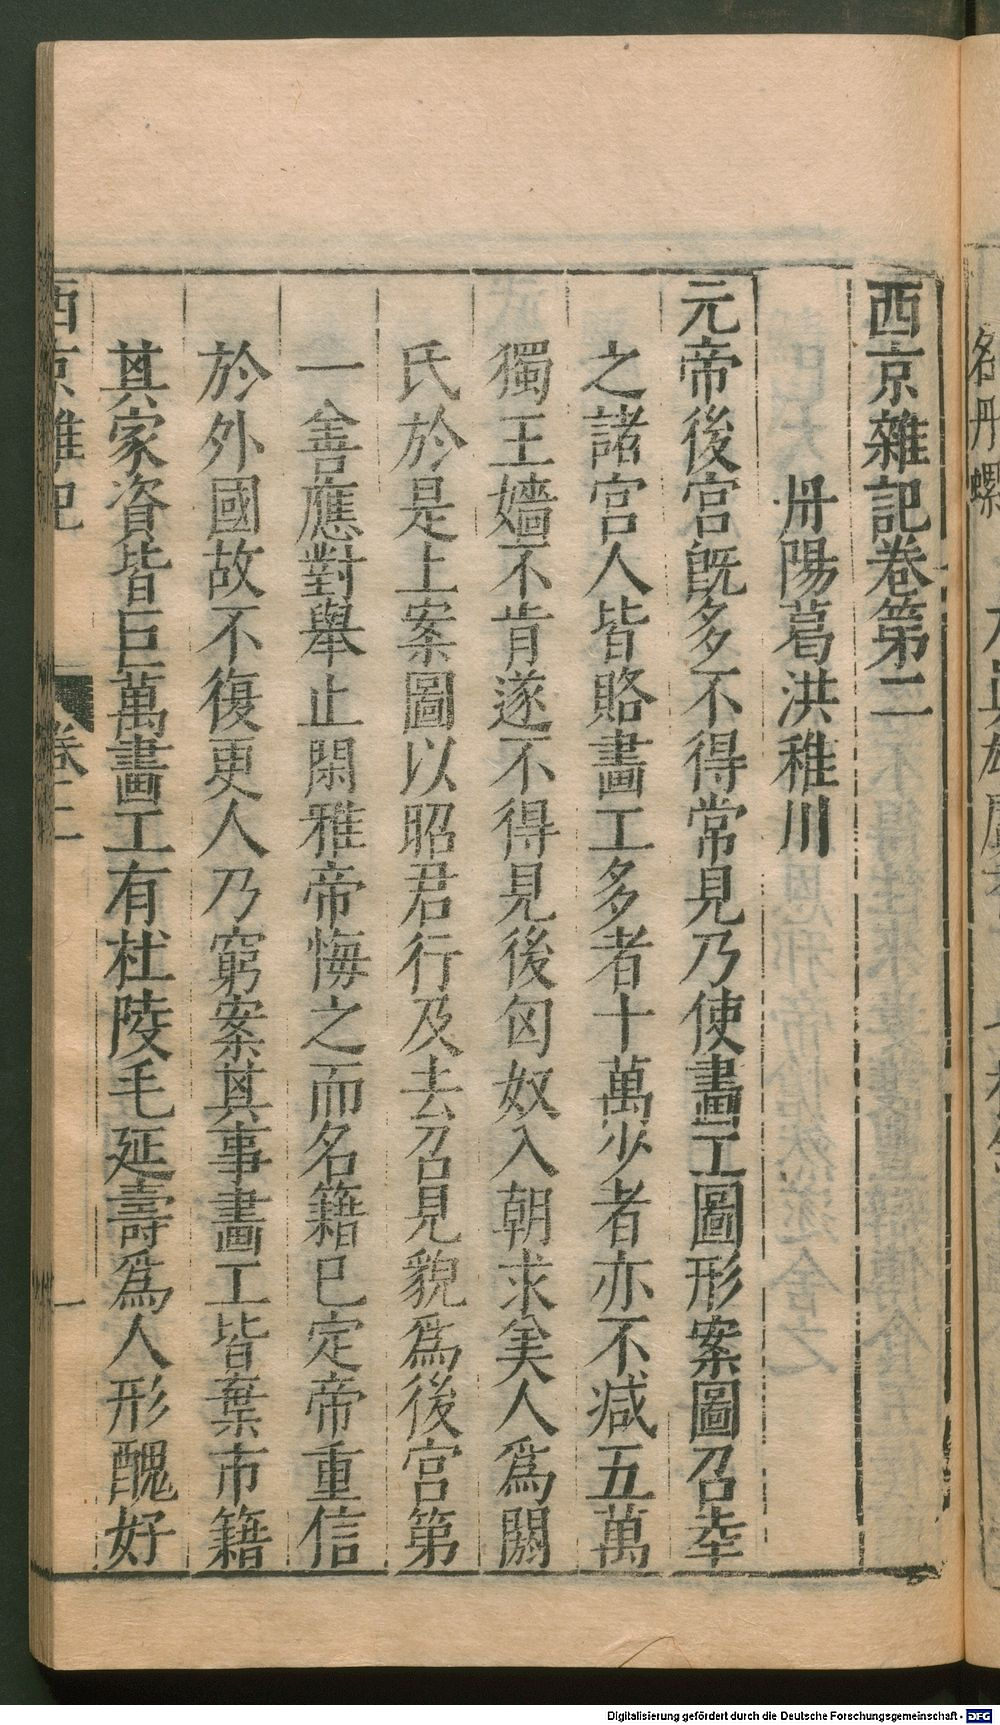 西京雜記卷第二
丹陽葛洪稚川
元帝後宮旣多不得常見乃使畫工圖形案圖召幸
之諸宮人皆賂畫工多者十萬少者亦不减五萬
獨王嬙不肯遂不得見後匈奴入朝求美人爲閼
氏於是上案圖以昭君行及去召見貌爲後宮第
一善應對舉止閑雅帝悔之而名籍已定帝重信
於外國故不復更人乃窮案其事畫工皆棄市籍
其家資皆巨萬畫工有杜陵毛延壽爲人形醜好
西京雜記 卷二 一
Digitalisierung gefördert durch die Deutsche Forschungsgemeinschaft - DFG